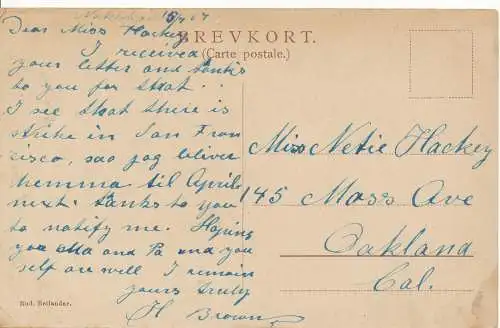 15/7 07
Dear Miss Hackey
BREVKORT.
(Carte postale.)
I received
your letter and tanks
to you for that..
I see that there is
strike in San Fran
cisco, sao jag bliver
hemma til April
next. tanks to you
to notify me. Hoping
you Ma and Pa and you
self are well I remain
yours truly
H Brown
Miss Netie Hackey
145 Mass Ave
Oakland
Cal.
Rud. Beilander.